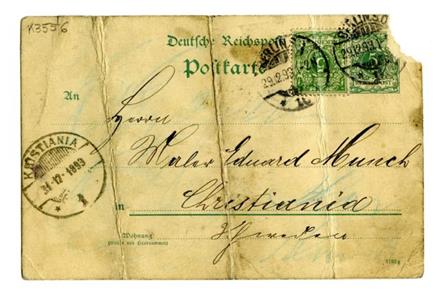 K3556
Deutsche Reichspost
Postkarte
BERLIN S.
29.12.93
An
Herrn
Maler Eduard Munch
KRISTIANIA
31-12-1893
1
in
Christiania
Schweden
Wohnung